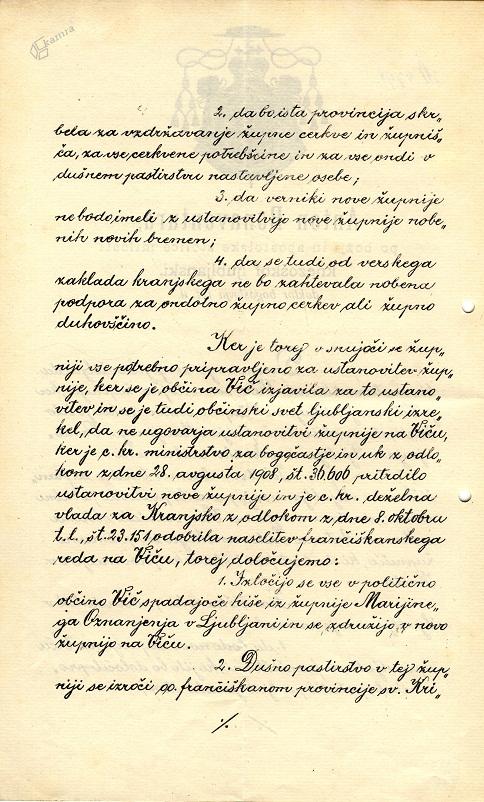 kamra
2. da bo ista provincija skr„
bela za vzdržavanje župne cerkve in župniš„
ča, za vse cerkvene potrebščine in za vse ondi v
dušnem pastirstvu nastavljene osebe;
3. da verniki nove župnije
ne bodo imeli z ustanovitvijo nove župnije nobe„
nih novih bremen;
4. da se tudi od verskega
zaklada kranjskega ne bo zahtevala nobena
podpora za ondotno župno cerkev ali župno
duhovščino.
Ker je torej v snujoči se žup„
niji vse potrebno pripravljeno za ustanovitev žup„
nije, ker se je občina Vič izjavila za to ustano„
vitev in se je tudi občinski svet ljubljanski izre„
kel, da ne ugovarja ustanovitvi župnije na Viču,
ker je c. kr. ministrstvo za bogočastje in uk z odlo„
kom z dne 28. avgusta 1908, št. 36.606 pritrdilo
ustanovitvi nove župnije in je c. kr. deželna
vlada za Kranjsko z odlokom z dne 8. oktobru
t. l., št. 23.151 odobrila naselitev frančiškanskega
reda na Viču, torej določujemo:
1. Izločijo se vse v politično
občino Vič spadajoče hiše iz župnije Marijine„
ga Oznanjenja v Ljubljani in se združijo v novo
župnijo na Viču.
2. Dušno pastirstvo v tej žup„
niji se izroči oo. frančiškanom provincije sv. Kri„
·/.